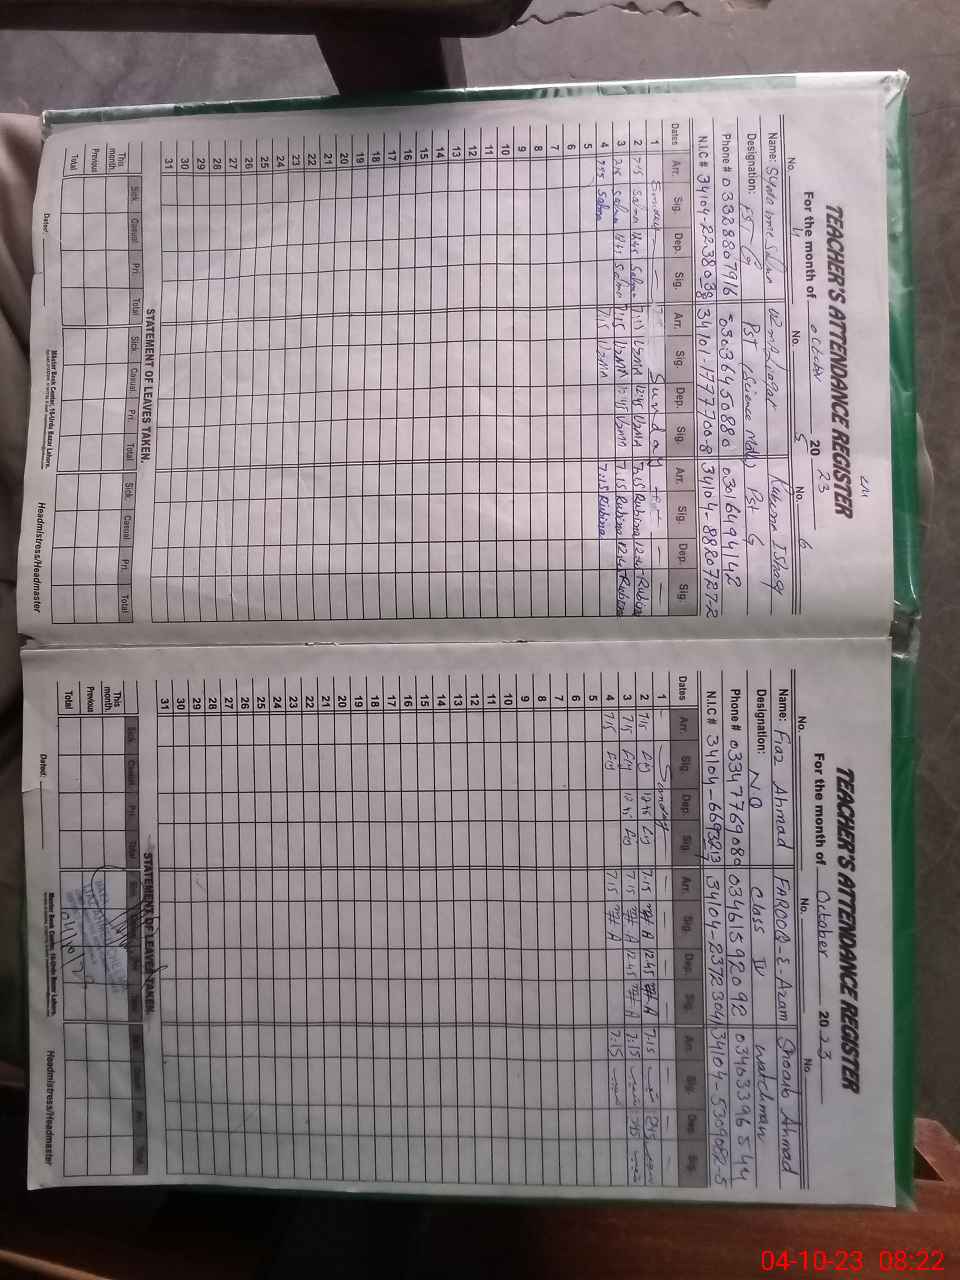 TEACHER'S ATTENDANCE REGISTER
For the month of October 20 23
No. 4 No. 5 No. 6
Name: Syeda Salma Rubina Ishaq
Designation: PST G PST (Science Math) Pst G
Phone # 03328807916 03036450880 03016494142
N.I.C # 34104-2238038 34101-1777700-8 34104-8820727-2
Dates Arr. Sig. Dep. Sig. Arr. Sig. Dep. Sig. Arr. Sig. Dep. Sig.
1 Sunday Sunday
2 7:15 Salma 12:45 Salma 7:15 UZMA 12:45 UZMA 7:15 Rubina 12:45 Rubina
3 7:15 Salma 12:45 Salma 7:15 UZMA 12:45 UZMA 7:15 Rubina 12:45 Rubina
4 7:15 Salma 7:15 UZMA 7:15 Rubina
5
6
7
8
9
10
11
12
13
14
15
16
17
18
19
20
21
22
23
24
25
26
27
28
29
30
31
STATEMENT OF LEAVES TAKEN.
Sick Casual Pri. Total Sick Casual Pri. Total Sick Casual Pri. Total
This month.
Previous
Total
Dated: Master Book Center, 10-Urdu Bazar Lahore. Headmistress/Headmaster
TEACHER'S ATTENDANCE REGISTER
For the month of October 20 23
No. No. No.
Name: Fiaz Ahmad FAROOQ-E-Azam Shoaib Ahmad
Designation: N Q Class IV watchman
Phone # 03347769080 03461592092 03403396544
N.I.C # 34104-6693213 34104-2372304 34104-5309082-5
Dates Arr. Sig. Dep. Sig. Arr. Sig. Dep. Sig. Arr. Sig. Dep. Sig.
1 Sunday
2 7:15 12:45 7:15 12:45 7:15
3 7:15 12:45 7:15 12:45 7:15
4 7:15 7:15 7:15
5
6
7
8
9
10
11
12
13
14
15
16
17
18
19
20
21
22
23
24
25
26
27
28
29
30
31
STATEMENT OF LEAVES TAKEN.
Sick Casual Pri. Total Sick Pri. Total
This month.
Previous
Total
Dated: Master Book Center, 10-Urdu Bazar Lahore. Headmistress/Headmaster
04-10-23 08:22